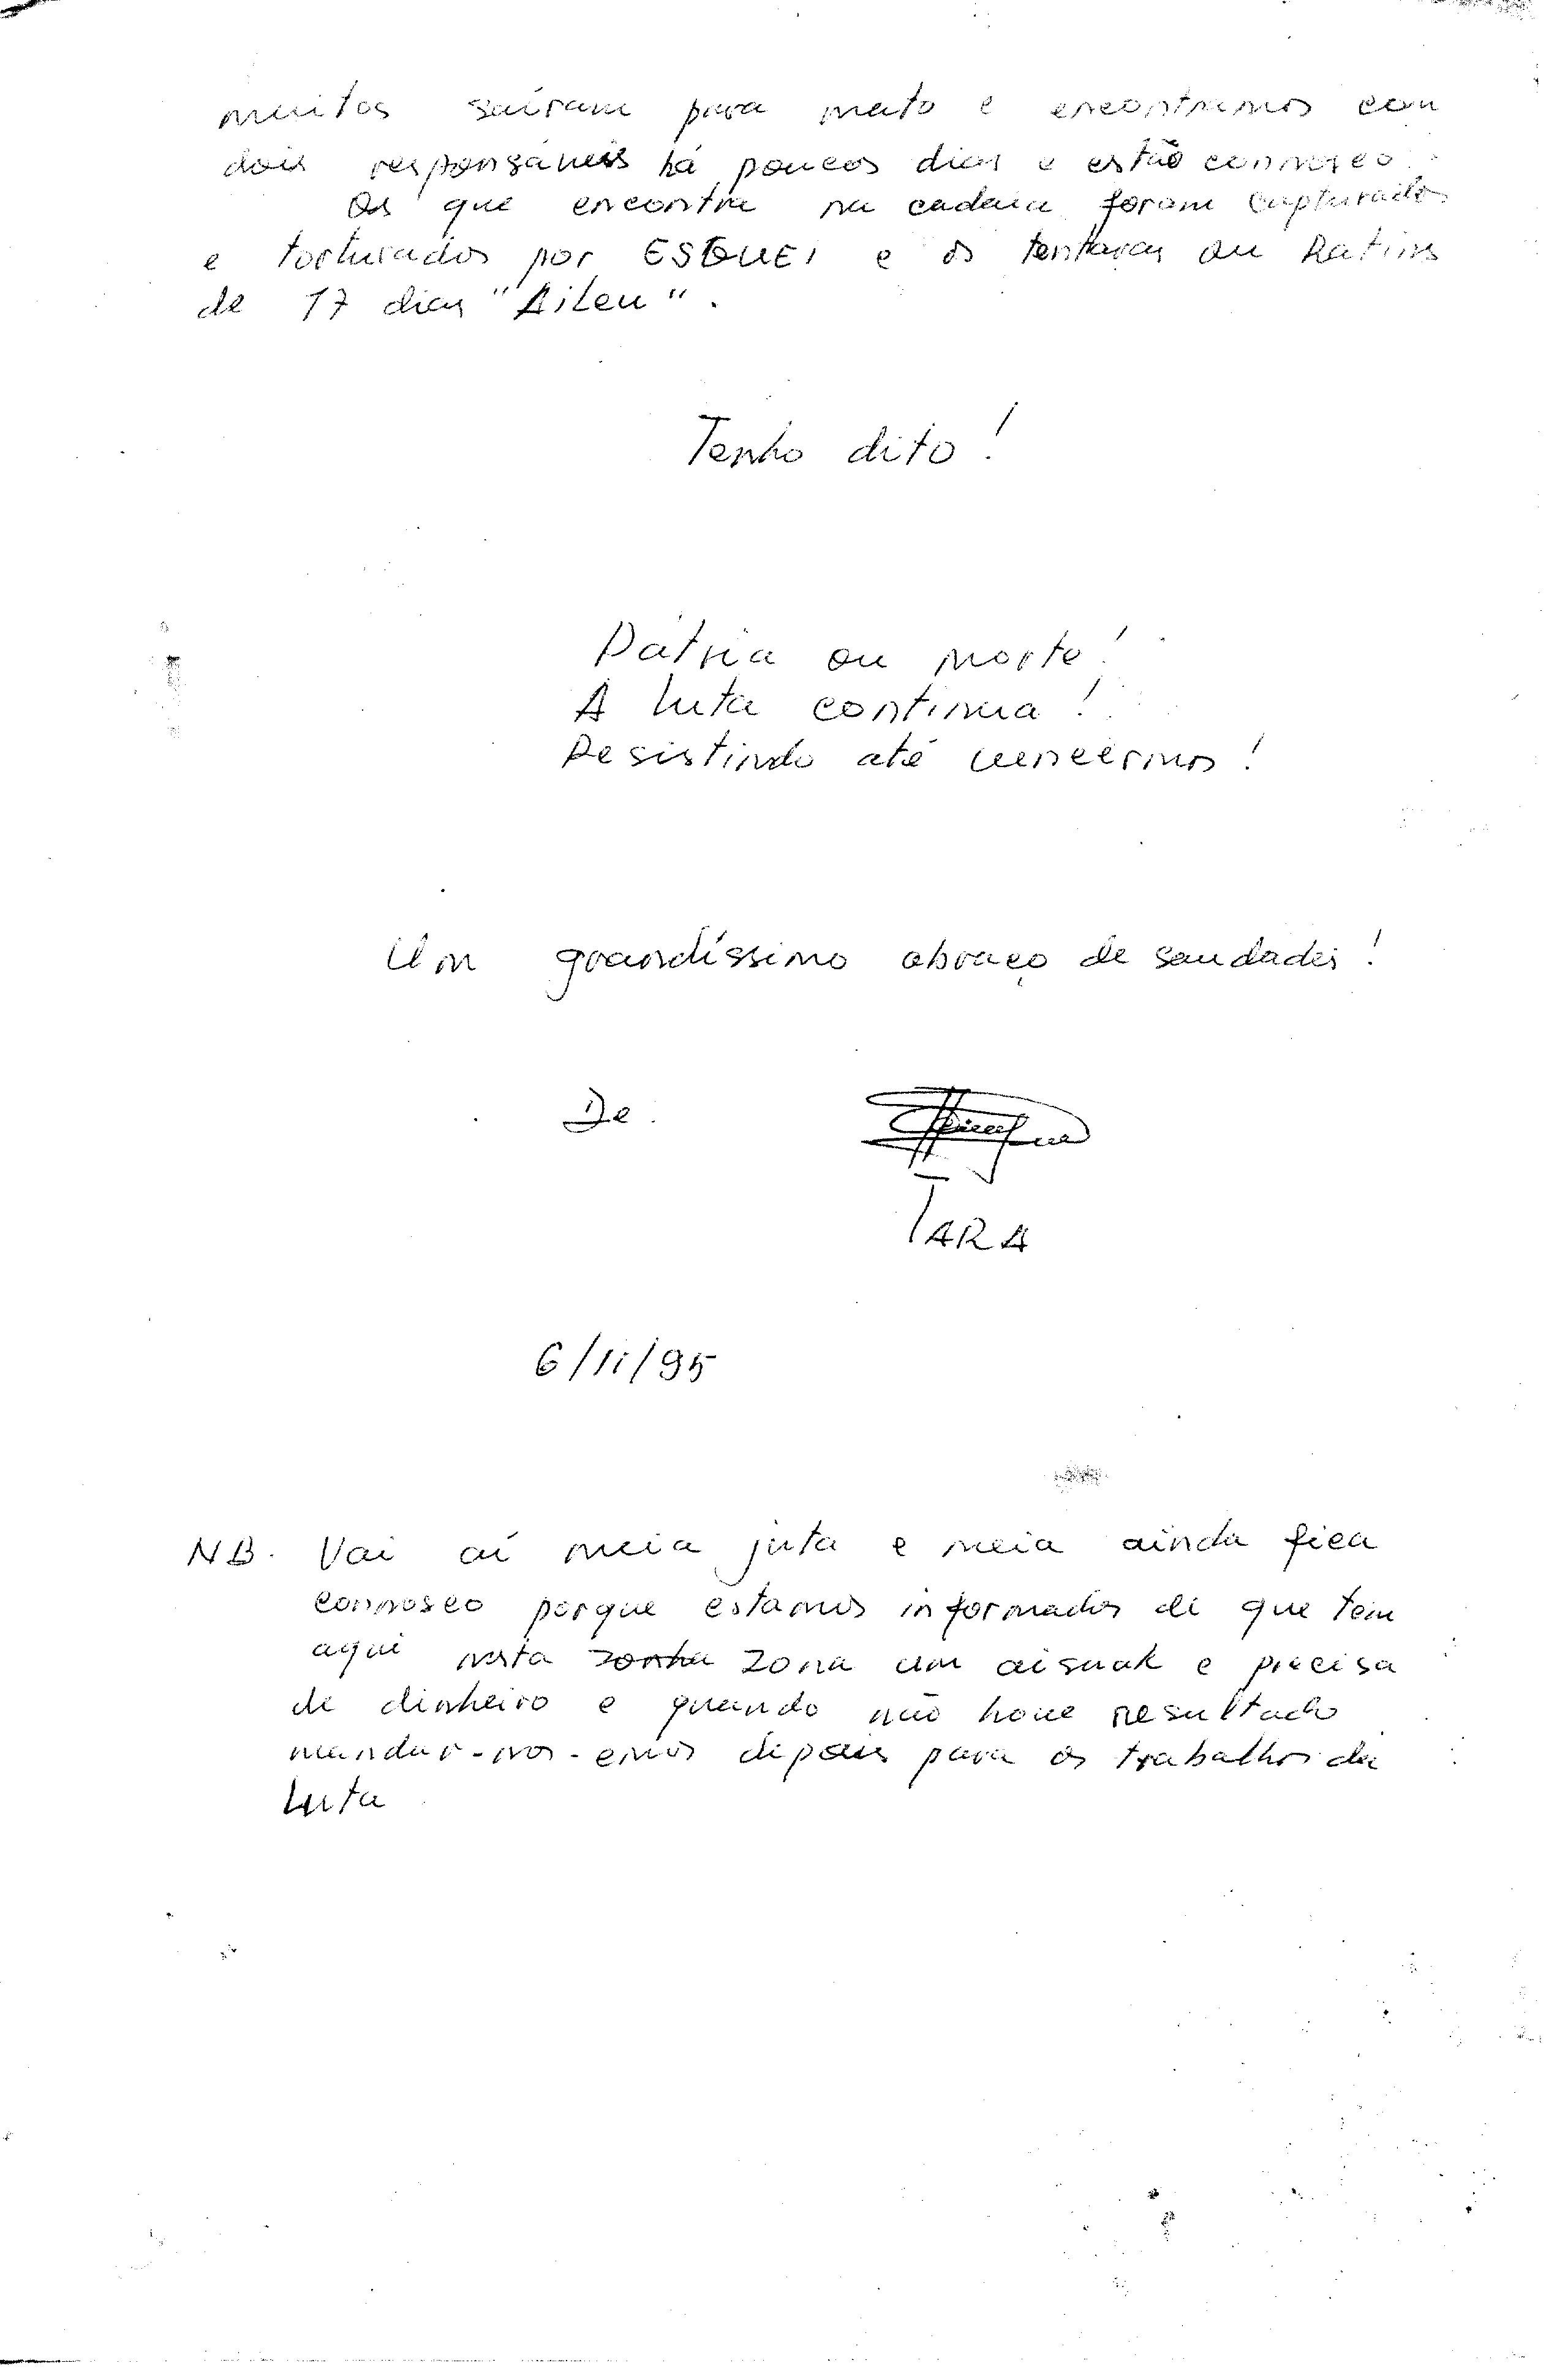 muitos saíram para mato e encontramos com
dois responsáveis há poucos dias e estão connosco.
Os que encontra na cadaia foram capturados
e torturados por ESQUEI e os tentaras ou Ratins
de 17 dias "Aileu".
Tenho dito!
Pátria ou morte!
A luta continua!
Resistindo até vencermos!
Um grandíssimo abraço de saudades!
De
TARA
6/11/95
NB. Vai aí meia juta e meia ainda fica
connosco porque estamos informados de que tem
aqui nesta zonha zona um aisuak e precisa
de dinheiro e quando não houve resultado
mandar-nos-emos depois para os trabalhos da
Luta